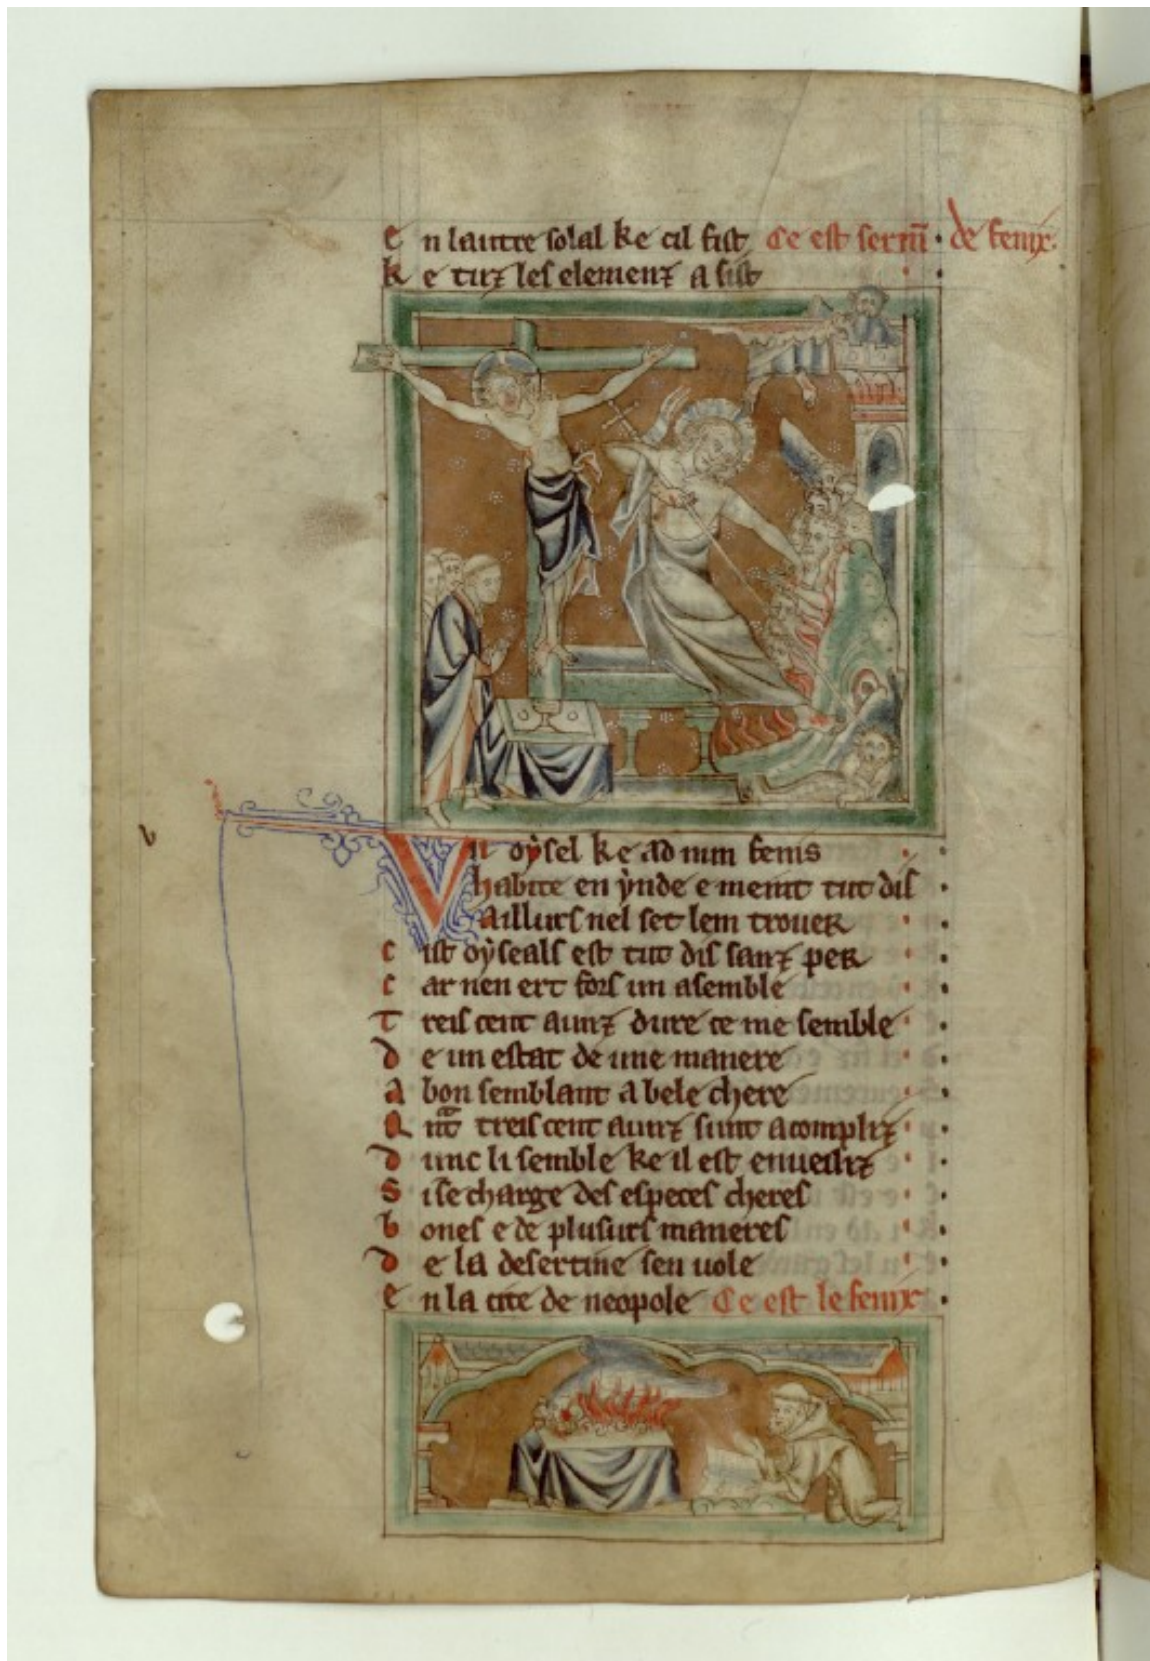 e n lautre solal ke cil fist Ce est sermū de fenix.
k e tuz les elemenz a sist
Un oẏsel ke ad nun fenis
habite en ẏnde e meint tut dis
aillurs nel set lem trouer
c ist oẏseals est tut dis sanz per
c ar nen ert fors un asemble
T reis cent aunz dure ce me semble
d e un estat de une manere
a bon semblant a bele chere
Q nt treis cent aunz sunt acompliz
d unc li semble ke il est enueilliz
S i se charge des especes cheres
b ones e de plusurs maneres
d e la desertine sen uole
e n la cite de neopole Ce est le fenix